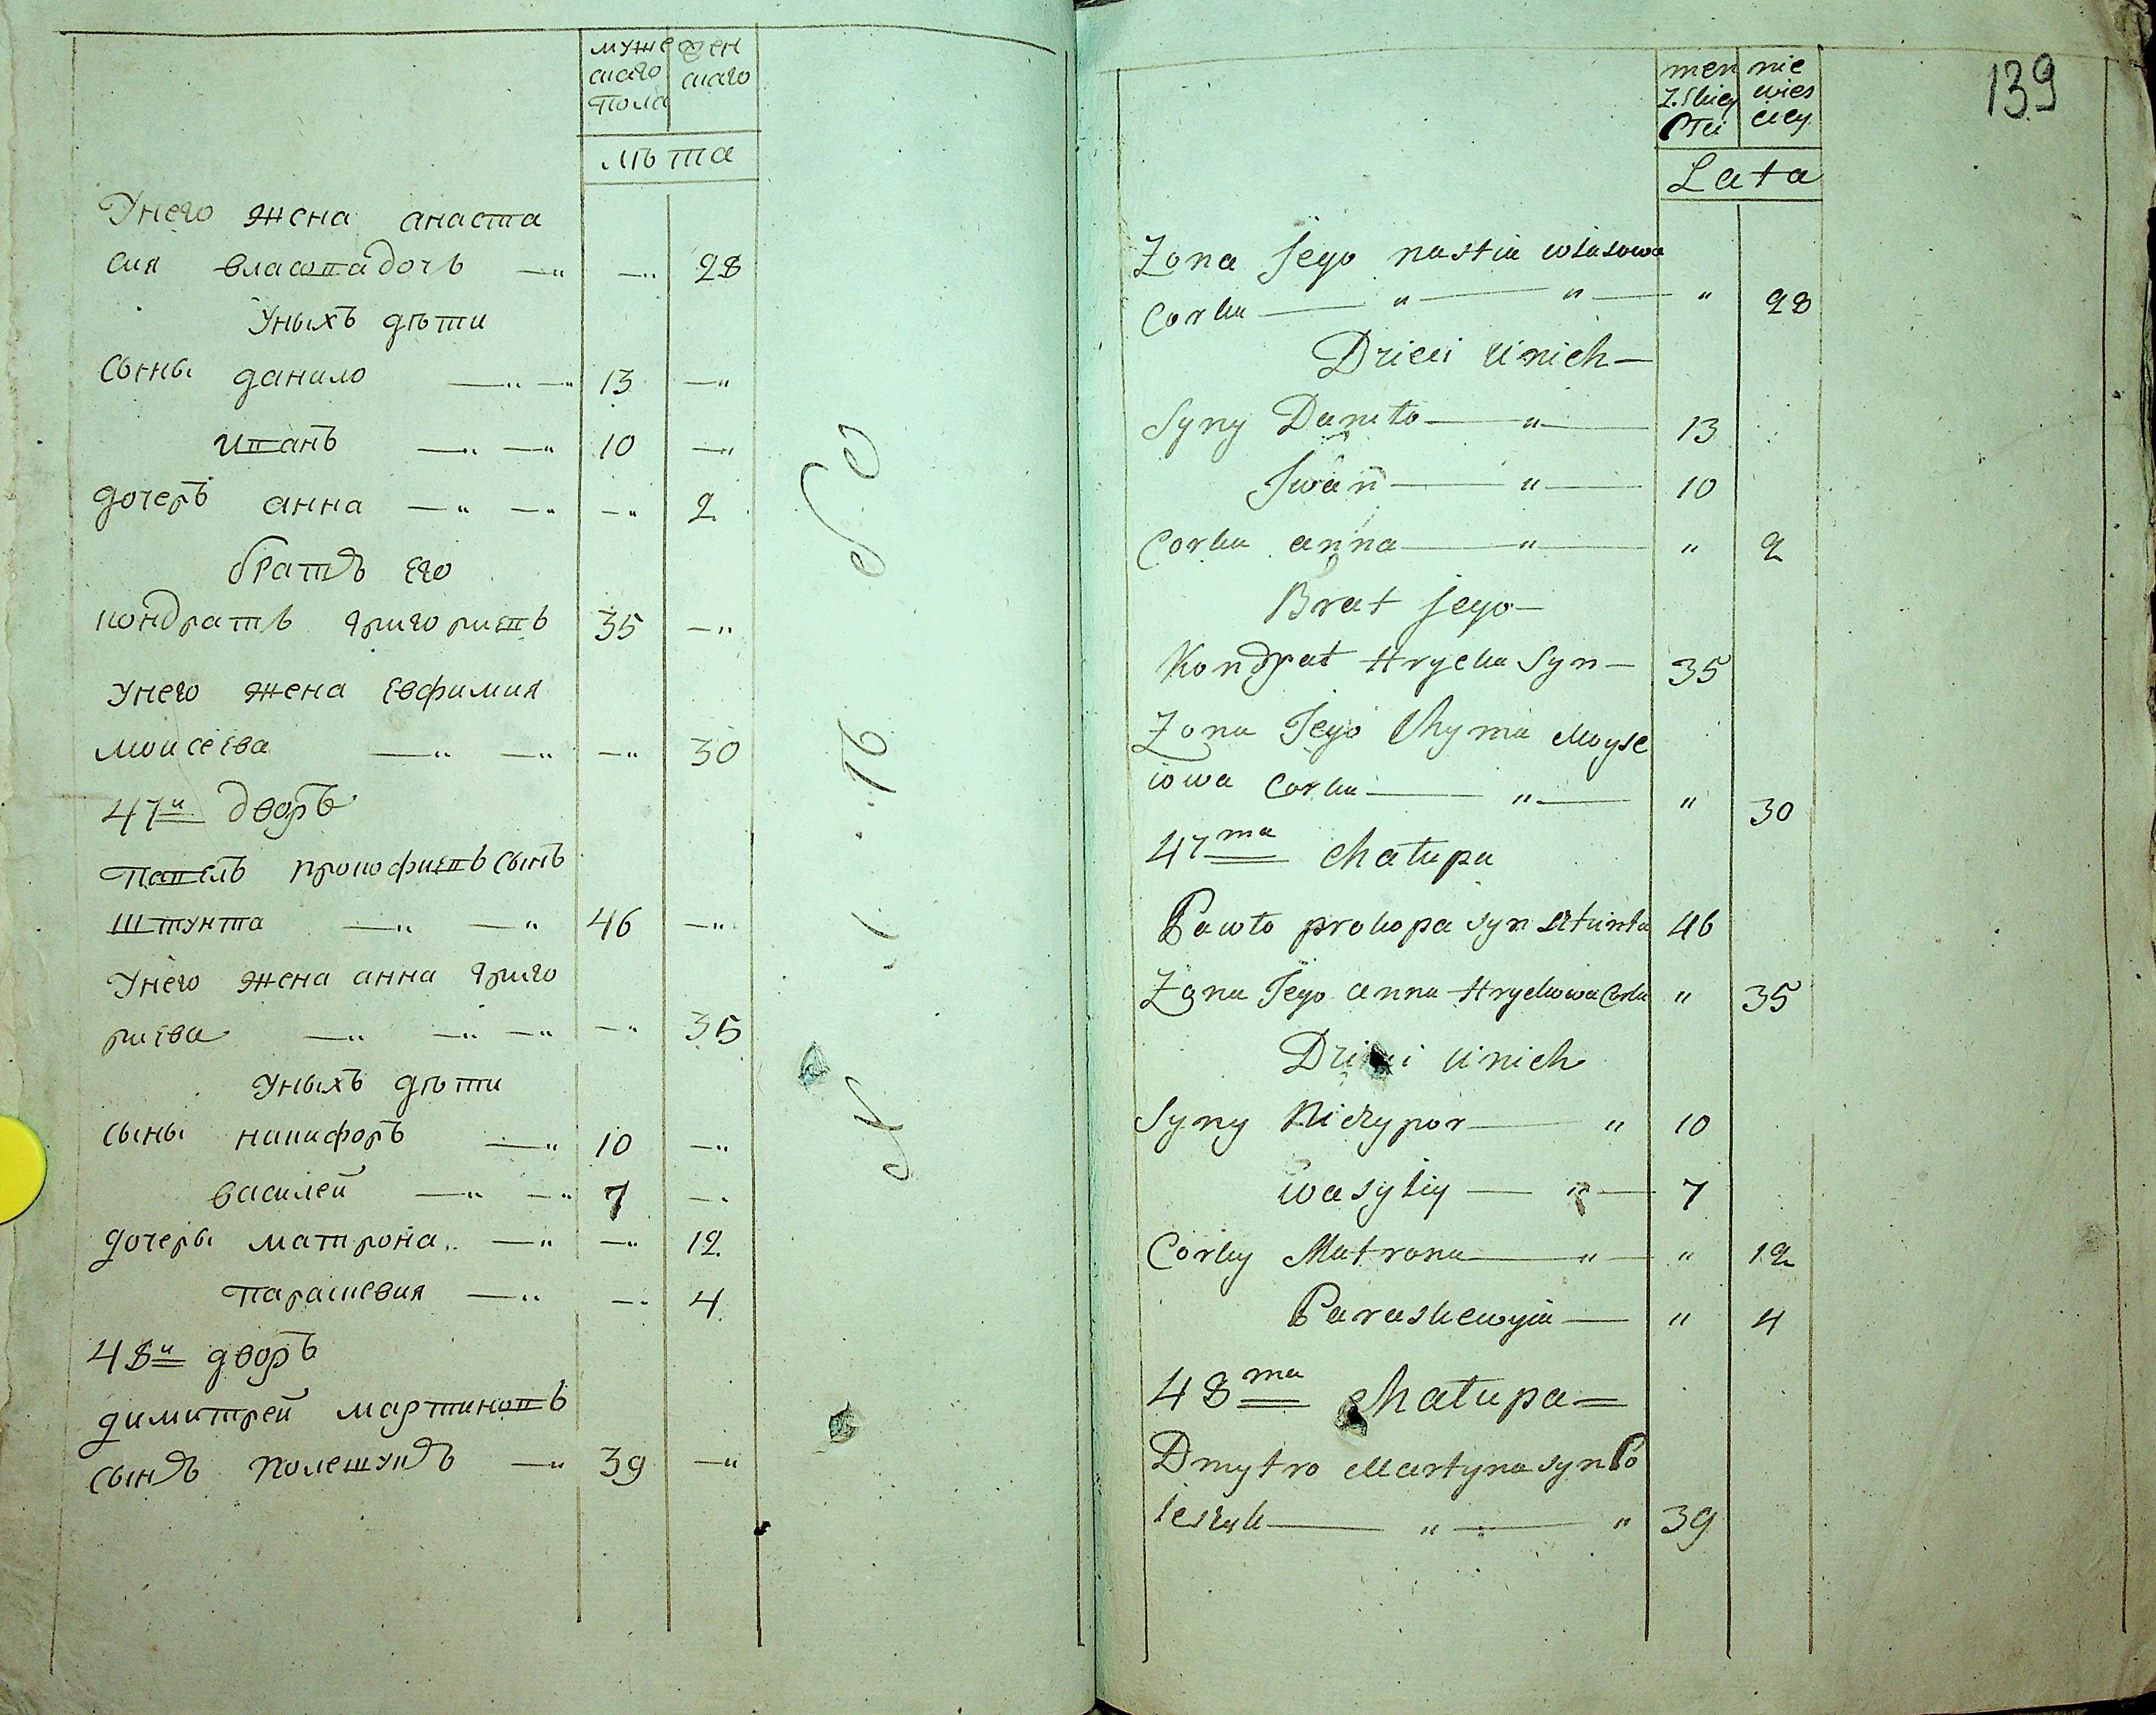 муже жен
скаго скаго
пола
лѣта
Унего жена анаста
сия власова дочь 28
Уныхъ дѣти
Сыны данило 13
иванъ 10
дочеръ анна 2
братъ его
кондратъ григориевъ 35
Унего жена Евфимия
моисеева 30
47й дворъ
павелъ прокофиевъ сынъ
штунта 46
Унего жена анна григо
риева 35
Уныхъ дѣти
сыны никифоръ 10
василей 7
дочеры матрона 12
параскевия 4
48й дворъ
димитрей мартиновъ
сынъ полешукъ 39
139
men nie
zskiey wies
Płci ciey
Lata
Zona Jego nastia własowa
Corka " " " 28
Dzieci u nich
Syny Daniło " 13
Jwan " 10
Corka anna " " 2
Brat jego
Kondrat Hryćka Syn 35
Zona Jego Uhymia Moyse
iowa Corka " " 30
47ma Chałupa
Pawło prokopa syn sztunta 46
Zona Jego anna Hryćkowa Corka " 35
Dzieci u nich
Syny Niczypor " 10
wasyliy " 7
Corky Matrona " " 12
Paraskewyia " 4
48ma Chałupa
Dmytro Martyna syn Po
leszuk " " 39